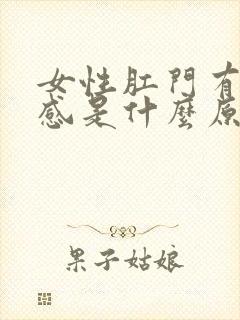 女性肛門有
感是什麼原
果子姑娘